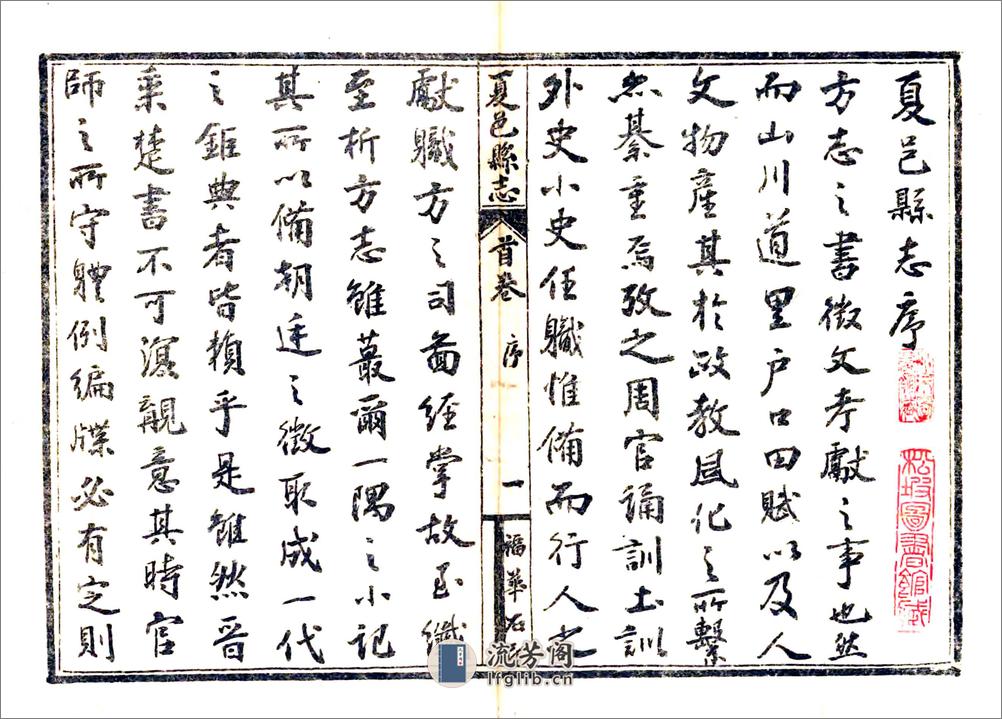 夏邑縣志序
方志之書徵文考獻之事也然
而山川道里户口田賦以及人
文物産其於政教風化之所繫
綦重焉攷之周官誦訓土訓
外史小史任職惟備而行人之
夏邑縣志 首卷 序 一
獻職方之司啚經掌故至纖
至析方志雖蕞爾一隅之小記
其所以備朝廷之徵取成一代
之鉅典者皆賴乎是雖然晉
乘楚書不可深覩意其時官
師之所守體例編牒必有定則
松坡圖書館藏
流芳阁
lfglib.cn